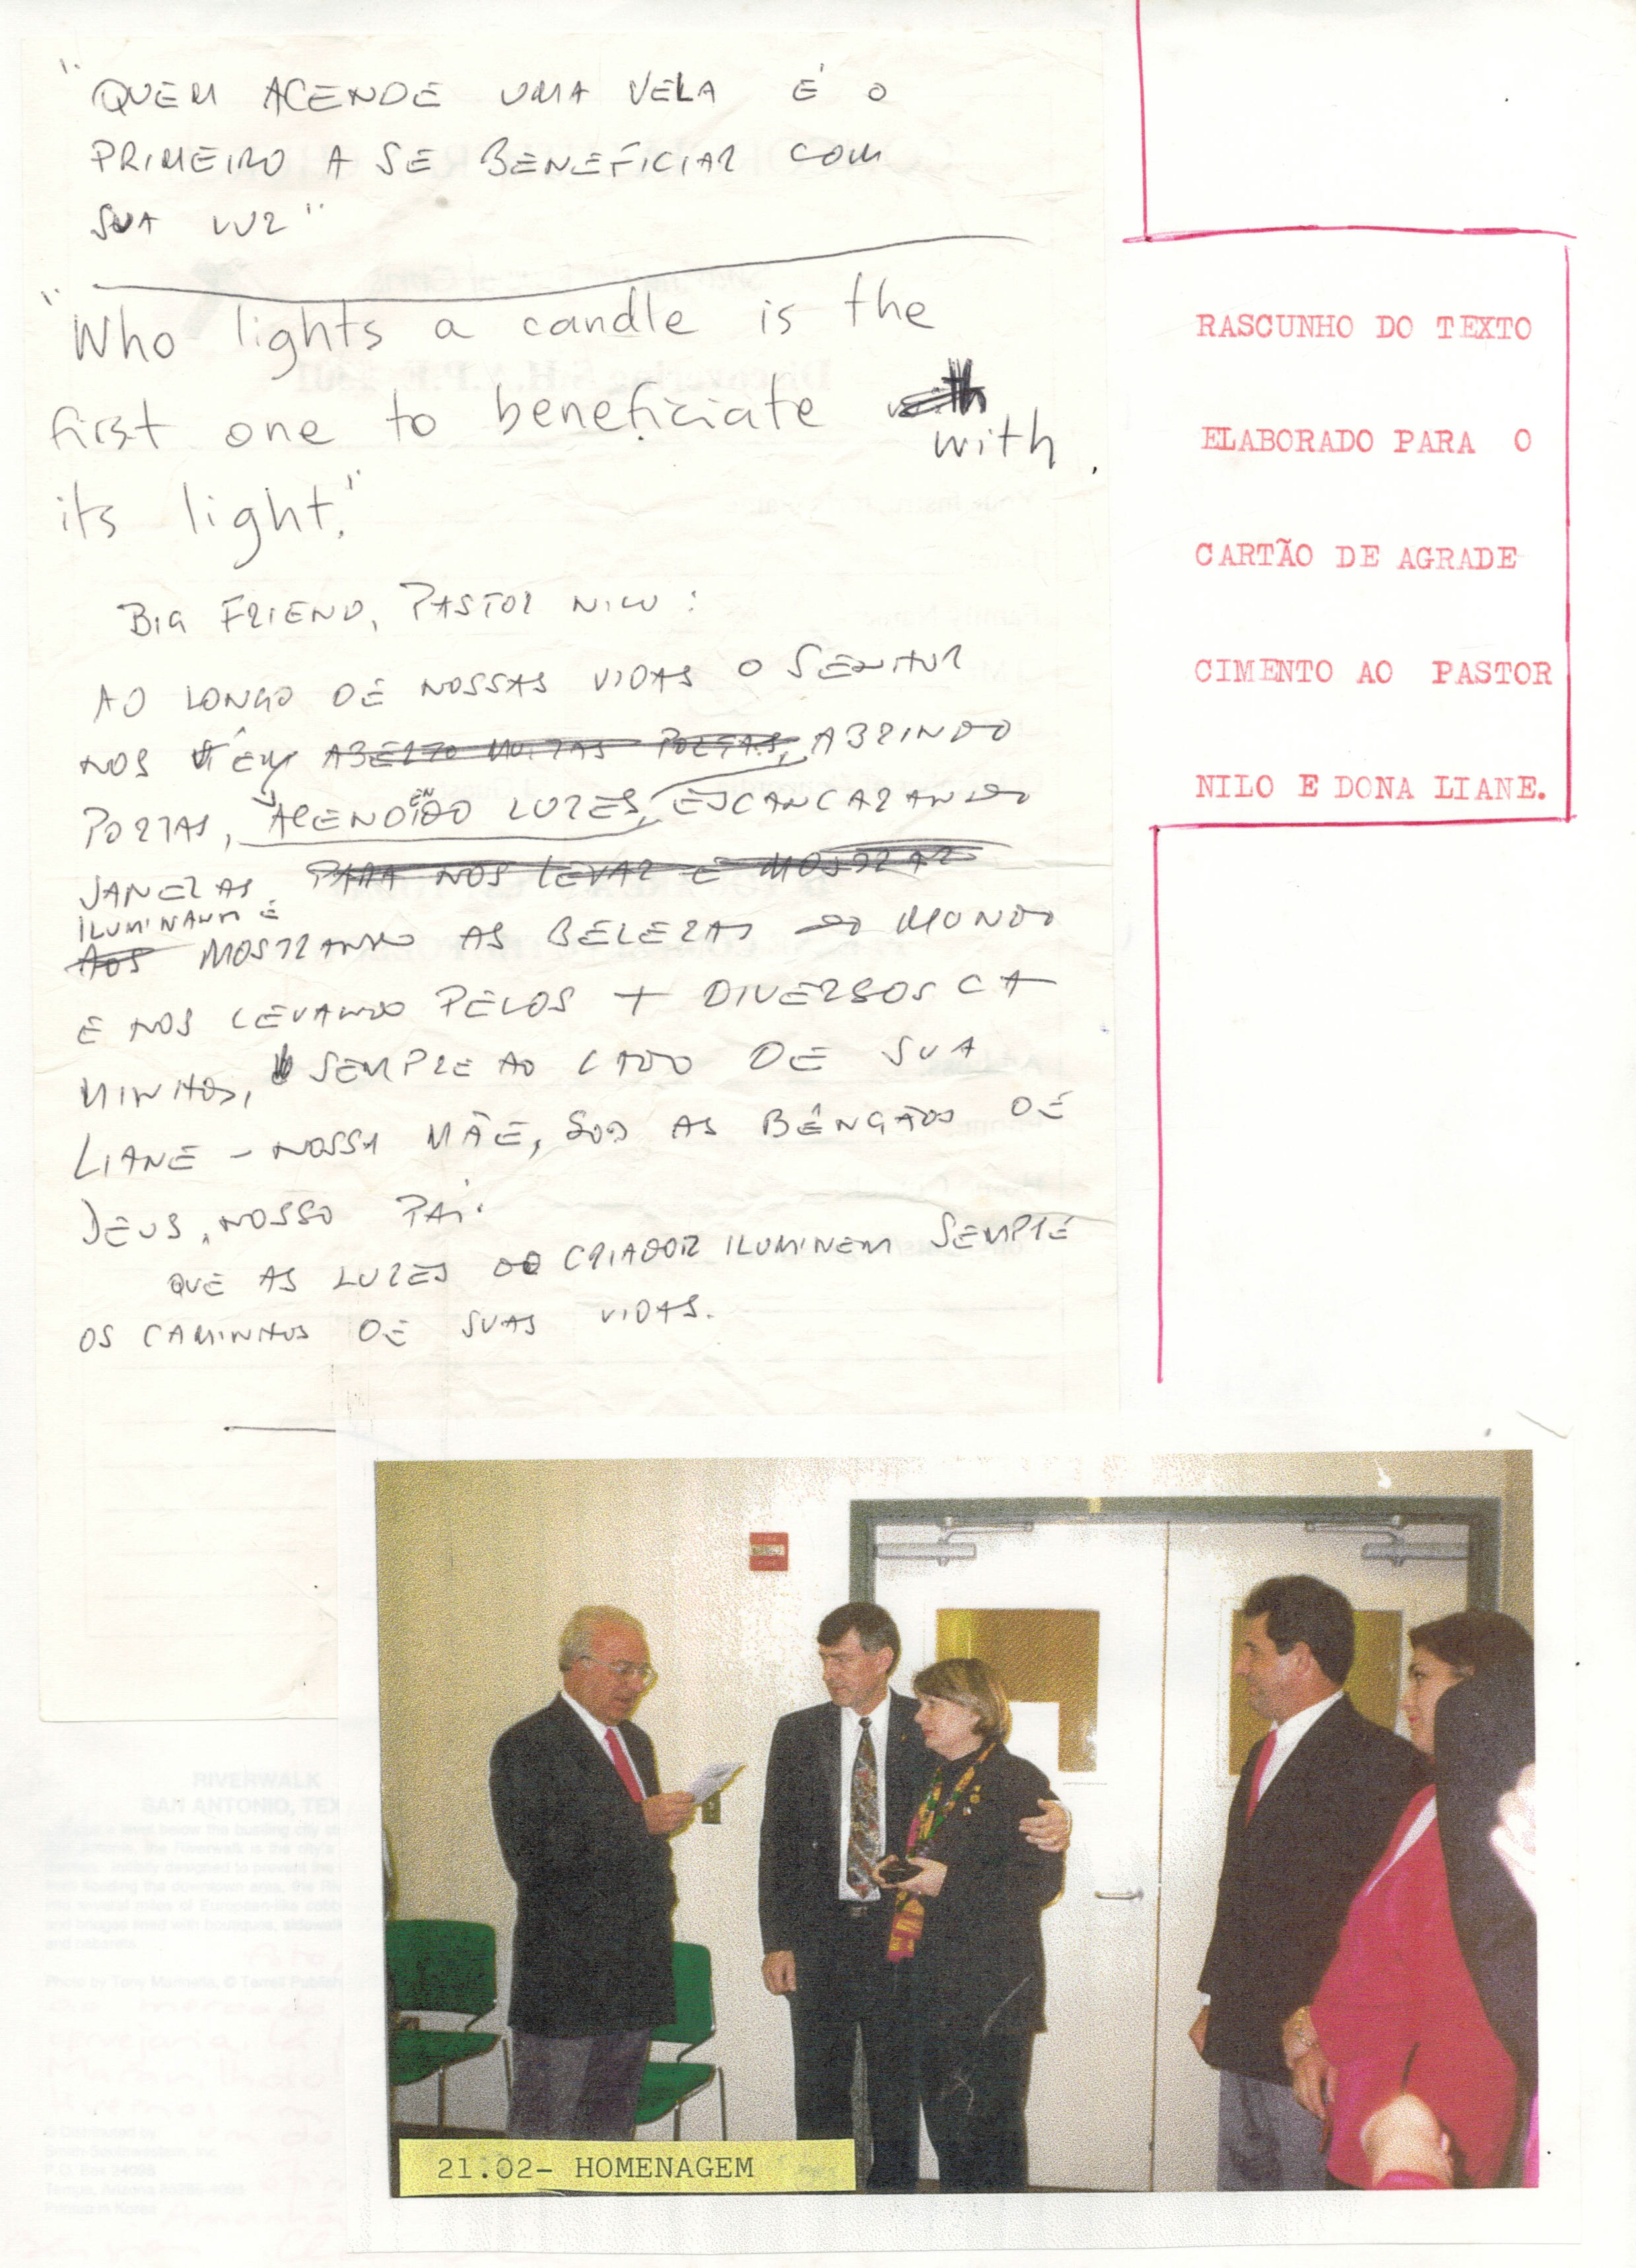 "QUEM ACENDE UMA VELA É O
PRIMEIRO A SE BENEFICIAR COM
SUA LUZ"
"Who lights a candle is the
first one to beneficiate with
its light."
BIG FRIEND, PASTOR NILO:
AO LONGO DE NOSSAS VIDAS O SENHOR
NOS TÊM ABERTO MUITAS PORTAS, ABRINDO
PORTAS, ACENDENDO LUZES, ESCANCARANDO
JANELAS, PARA NOS LEVAR E MOSTRAR
ILUMINANDO E
AOS MOSTRANDO AS BELEZAS DO MUNDO
E NOS LEVANDO PELOS + DIVERSOS CA
MINHOS, SEMPRE AO LADO DE SUA
LIANE - NOSSA MÃE, SOB AS BÊNÇÃOS DE
DEUS, NOSSO PAI.
QUE AS LUZES DO CRIADOR ILUMINEM SEMPRE
OS CAMINHOS DE SUAS VIDAS.
RASCUNHO DO TEXTO
ELABORADO PARA O
CARTÃO DE AGRADE
CIMENTO AO PASTOR
NILO E DONA LIANE.
21.02- HOMENAGEM
RIVERWALK
SAN ANTONIO, TEX